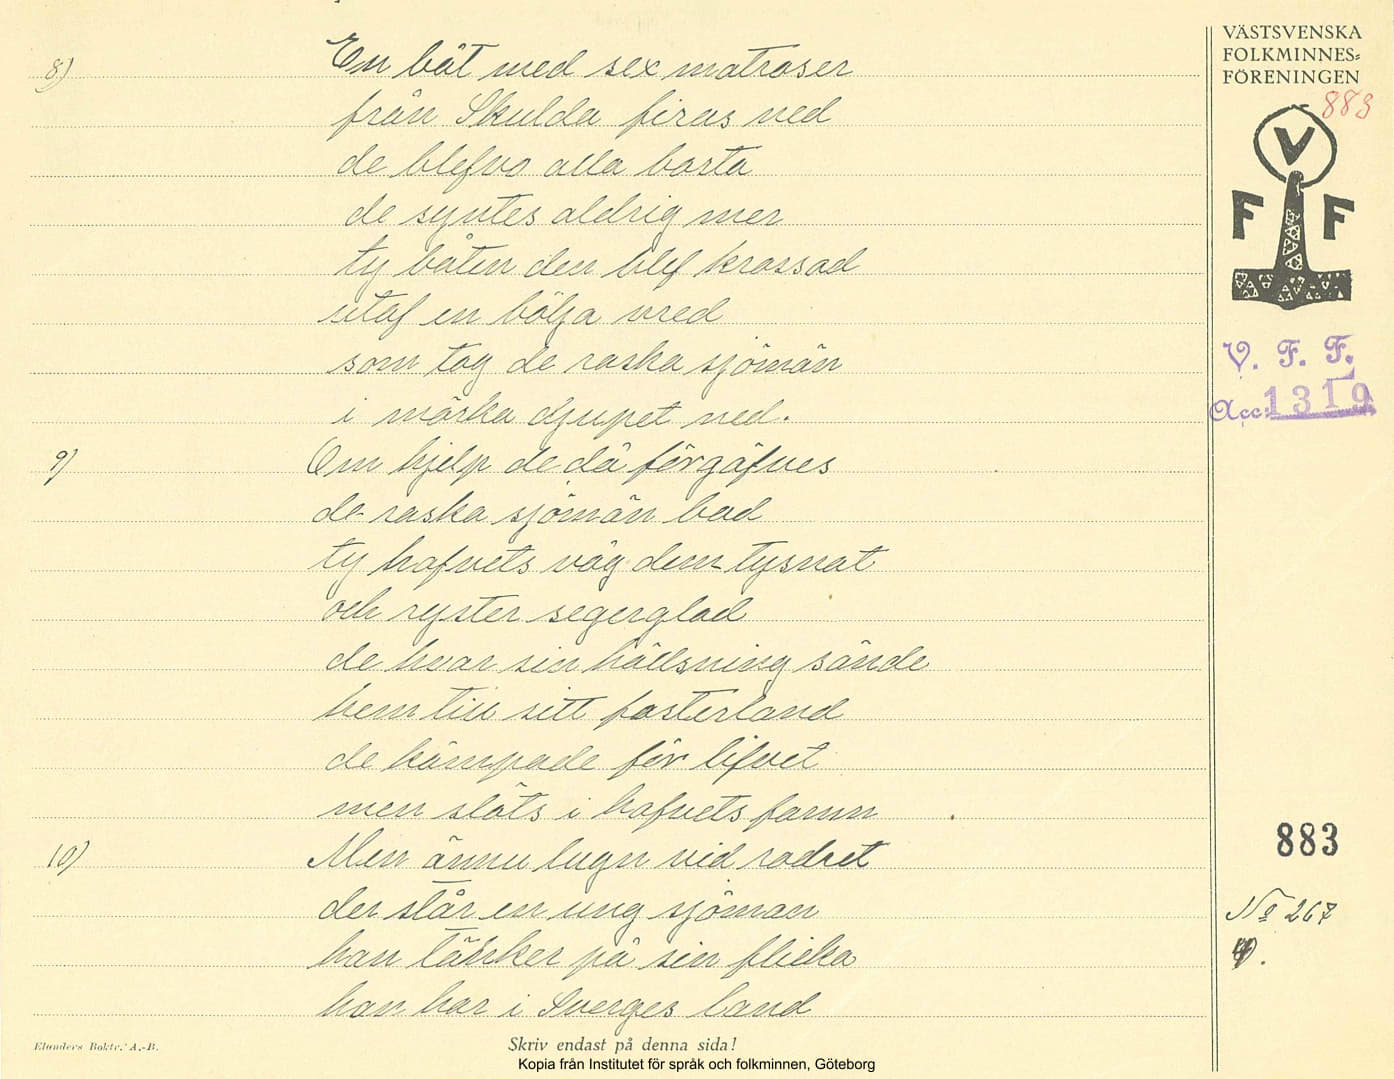 VÄSTSVENSKA
FOLKMINNES=
FÖRENINGEN
883
V
F F
V. F. F.
Acc: 1319
8) En båt med sex matroser
från Skulda firas ned
de blefvo alla borta
de syntes aldrig mer
ty båten den blef krossad
utaf en bölja vred
som tog de raska sjömän
i mörka djupet ned.
9) Om hjelp de då förgäfves
de raska sjömän bad
ty hafvets våg dem tysnat
och ryster segerglad
de hvar sin hällsning sände
hem till sitt fosterland
de kämpade för lifvet
men slöts i hafvets famn
10) Men ännu lugn vid rodret
der står en ung sjöman
han tänker på sin flicka
han har i Sverges land
883
No 267
Elanders Boktr. A.-B.
Skriv endast på denna sida!
Kopia från Institutet för språk och folkminnen, Göteborg